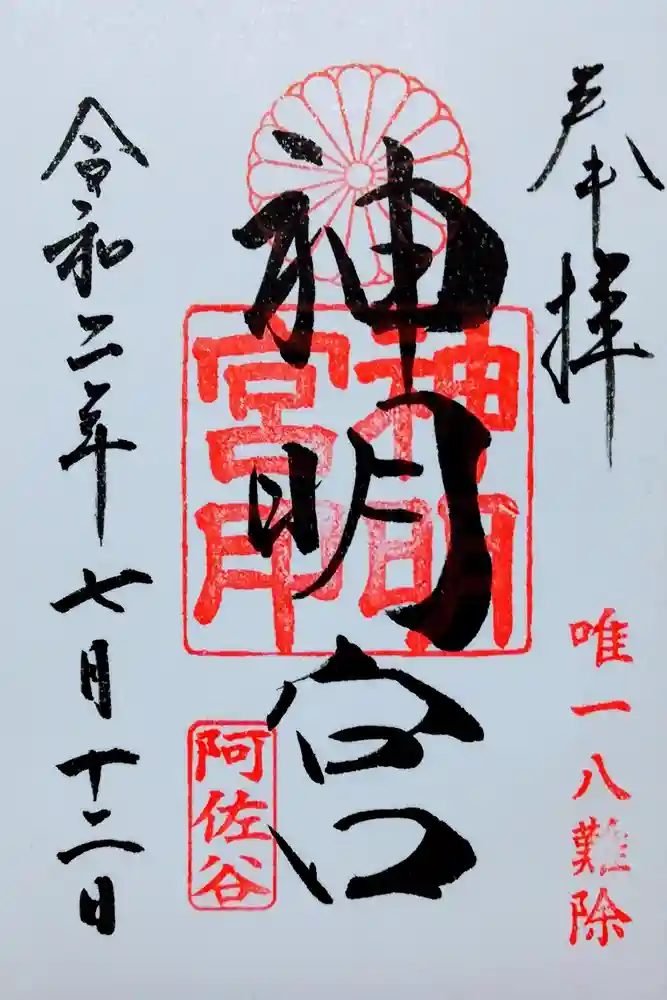 奉拝
唯一八難除
神明宮
神明
宮印
阿佐谷
令和二年七月十二日